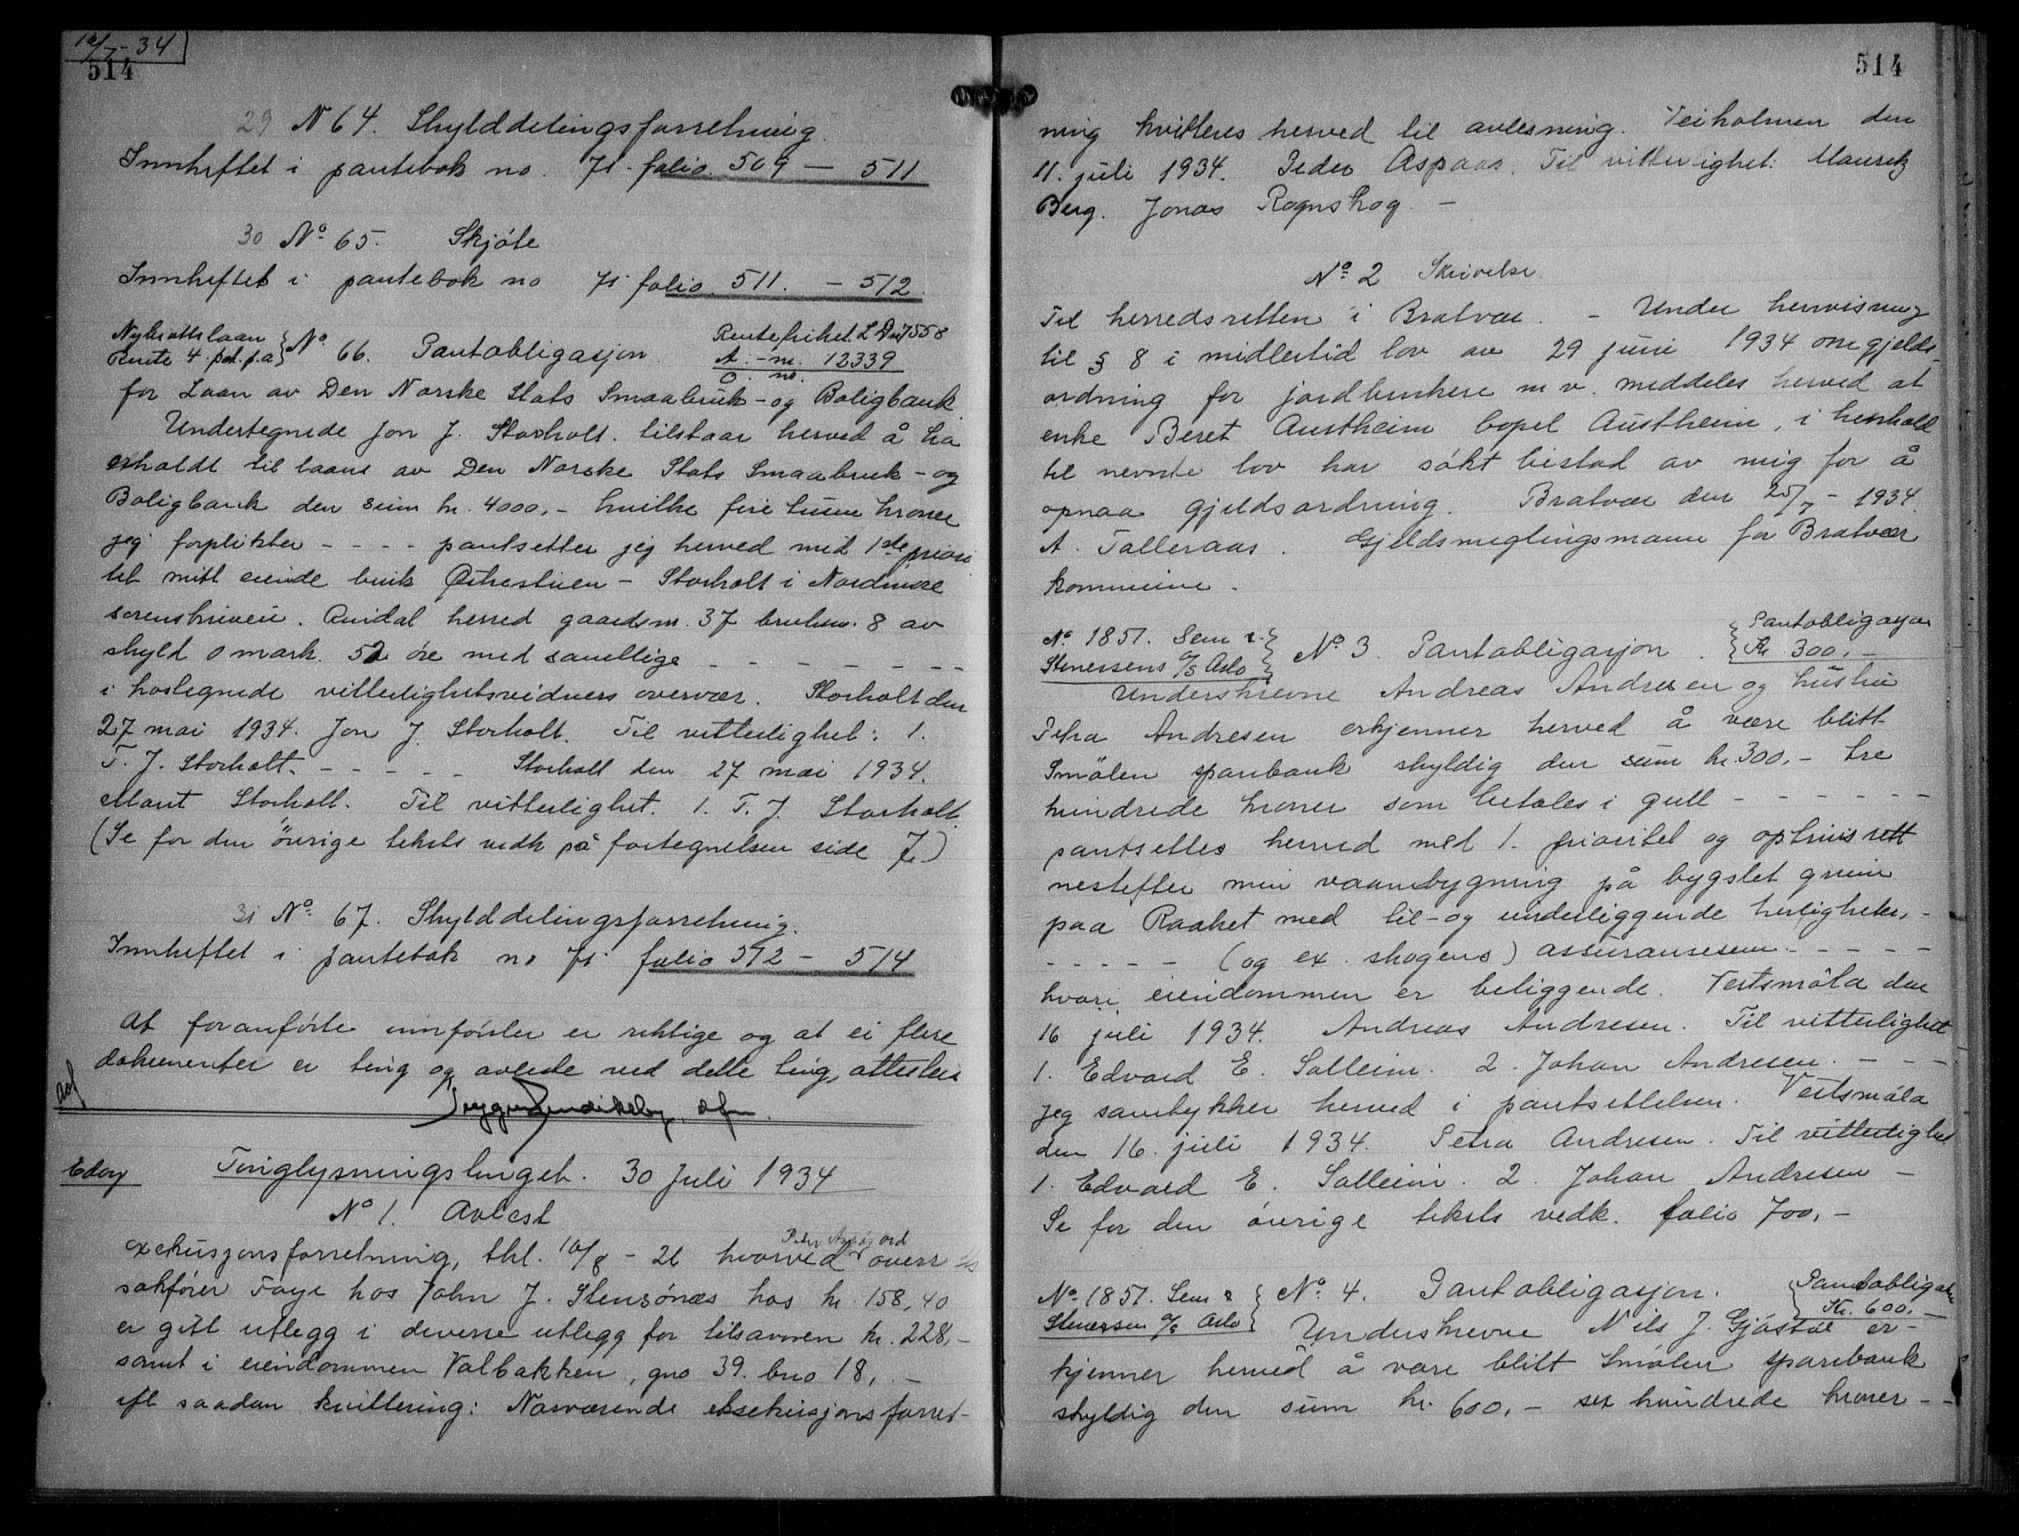 16/7-34
514
29 No 64. Skylddelingsforretning.
Innheftet i pantebok no. 71. folio. 509 — 511
30 No 65. Skjöte
Innheftet i pantebok no 71 folio. 511. - 512.
Nybrottslaan
Rente 4. pct. p.a. } No 66. Pantobligasjon
Rentefrihet. L. Dnr 7558
A. - nr. 12339
O. no.
for Laan av Den Norske Stats Smaabruk - og Boligbank
Undertegnede Jon J. Storholt. tilstaar herved å ha
erholdt til laans av Den Norske Stats Smaabruk - og
Boligbank den sum kr. 4000,- hvilke fire tusen kroner
jeg forplikter - - - - pantsetter jeg herved med 1ste priori
tet mitt eiende bruk Østrestuen - Storholt i Nordmøre
sorenskriveri. Rindal herred gaardsnr. 37 bruksnr. 8 av
skyld 0 mark. 52 öre med samtlige - - - - - - -
i hostegnede vitterlighetsvidners overvær. Storholt den
27 mai 1934. Jon J. Storholt. Til vitterlighet: 1.
T. J. Storholt. - - - - - Storholt den 27 mai 1934.
Marit Storholt. Til vitterlighet. 1. T. J. Storholt.
(Se for den övrige teksts vedk på fortegnelsen side 7.)
31 No 67. Skylddelingsforretning.
Innheftet i pantebok no 71 folio 512 - 514
At foranförte innførsler er riktige og at ei flere
dokumenter er ting og avleste ved dette ting, attesteres
Avf
Edöy Tinglysningstinget. 30 Juli 1934
No 1. Avlest
Peder Aspås ord
exekusjonsforretning, thl. 10/8 - 26 hvorved overr
sakfører Foye hos John J. Stensönes hos kr. 158,40
er gitt utlegg i diverse utlegg for tilsammen kr. 228,-
samt i eiendommen Valbakken, gno 39. bno 18, -
ift saadan kvittering: Nærværende eksekusjonsforret-
514
ning kvitteres herved til avlesning. Veiholmen den
11. juli 1934. Peder Aspaas. Til vitterlighet: Mauritz
Berg. Jonas Rognskog. -
No 2 Skrivelse.
Til herredsretten i Bratvær. - Under henvisning
til § 8 i midlertid lov av 29 juni 1934 om gjelds-
ordning for jordbrukere m v. meddeles herved at
enke Beret Austheim bopel Austheim, i henhold
til nevnte lov har søkt bistad av mig for å
opnaa gjeldsordning. Bratvær den 25/7 - 1934.
A. Talleraas. Gjeldsmeglingsmann for Bratvær
kommune.
No 1851. Sem &
Stenersens A/S Oslo } No 3. Pantobligasjon. { Pantobligasjon
Kr 300,-
Underskrevne Andreas Andresen og hustru
Petra Andresen erkjenner herved å være blitt
Smölen sparebank skyldig den sum kr. 300,- tre
hundrede kroner som betales i gull - - - - - -
pantsettes herved med 1. prioritet og optrinsrett
nestefter min vaanbygning på bygslet grunn
paa Raaket med til- og underliggende herligheter, -
- - - - - (og ex. skogens) assuransesum - - - - -
hvori eiendommen er beliggende. Vestsmöla den
16 juli 1934. Andreas Andresen. Til vitterlighet
1. Edvard E. Solleim. 2. Johan Andresen. - - -
Jeg samtykker herved i pantsettelsen. Vestsmöla
den 16. juli 1934. Petra Andresen. Til vitterlighet
1. Edvard E. Solleim. 2. Johan Andresen -
Se for den övrige teksts vedk. folio 700,-
No 1851. Sem &
Stenersen A/S Oslo } No 4. Pantobligasjon. { Pantobligasjon
Kr. 600,-
Underskrevne Nils J. Gjöstöl er-
kjenner herved å være blitt Smölen sparebank
skyldig den sum kr. 600,- sex hundrede kroner - -